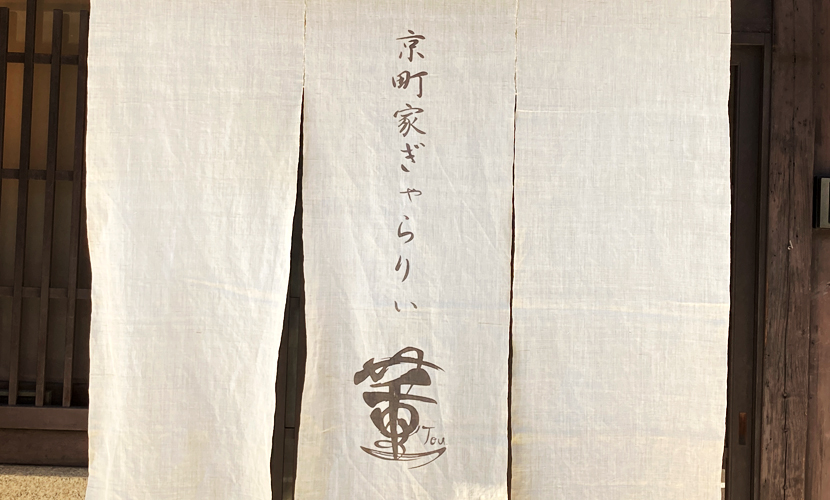 京町家ぎゃらりぃ
董
Tou